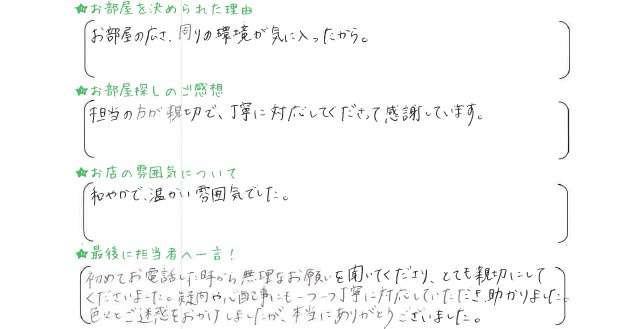 ★お部屋を決められた理由
お部屋の広さ、周りの環境が気に入ったから。
★お部屋探しのご感想
担当の方が親切で、丁寧に対応してくださって感謝しています。
★お店の雰囲気について
和やかで、温かい雰囲気でした。
★最後に担当者へ一言！
初めてお電話した時から無理なお願いを聞いてくださり、とても親切にして
くださいました。疑問や心配事にも一つ一つ丁寧に対応していただき、助かりました。
色々とご迷惑をおかけしましたが、本当にありがとうございました。